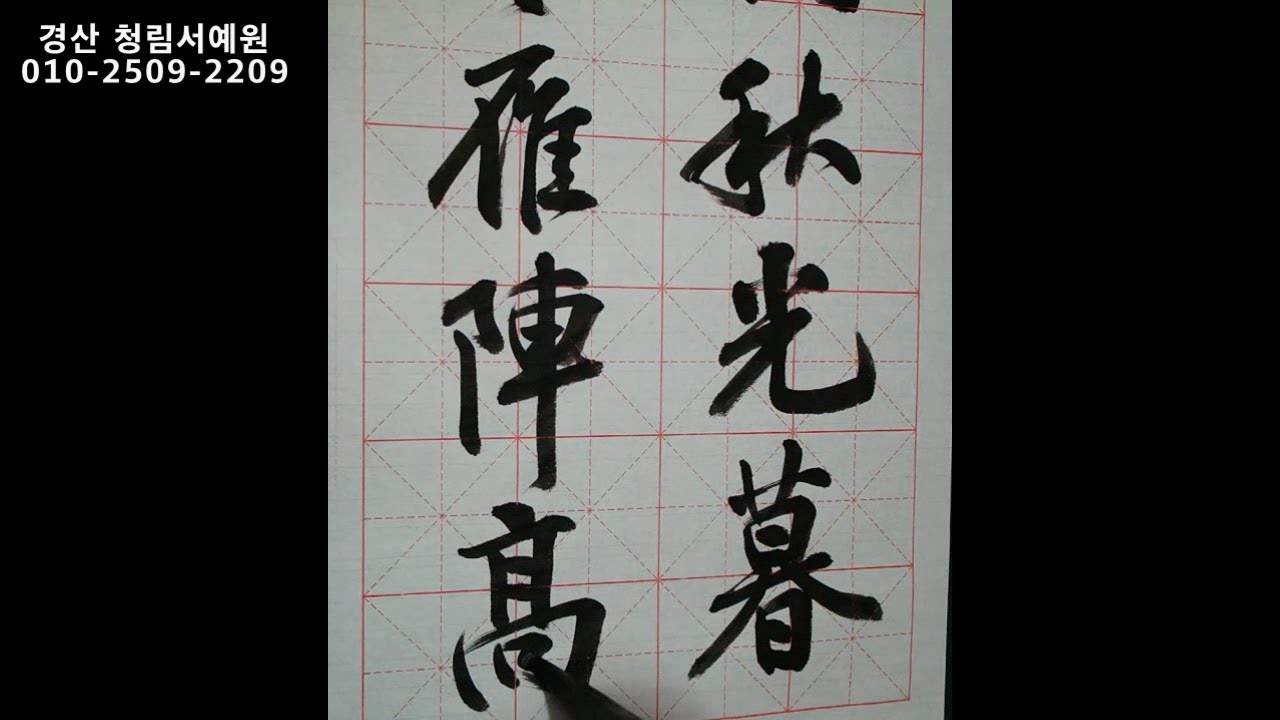 경산 청림서예원
010-2509-2209
秋光暮
雁陣高